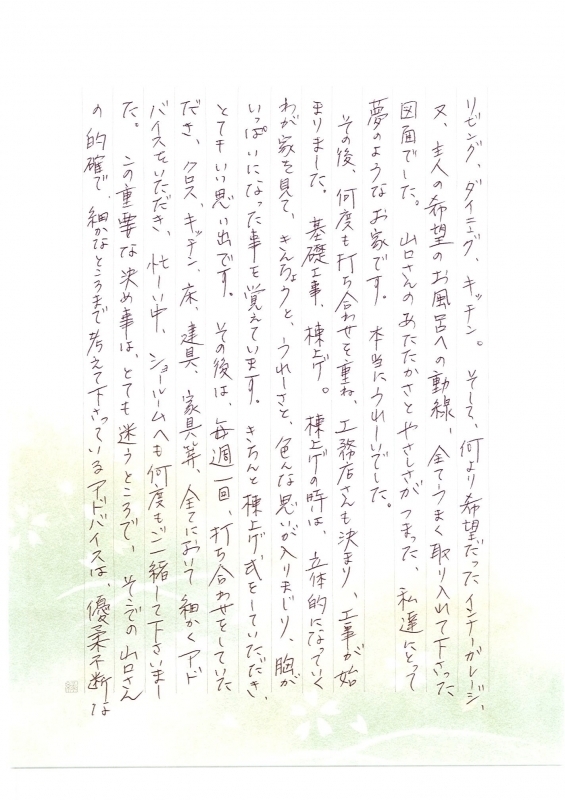 リビング、ダイニング、キッチン。そして、何より希望だったインナーガレージ、
又、主人の希望のお風呂への動線、全てうまく取り入れて下さった
図面でした。山口さんのあたたかさとやさしさがつまった、私達にとって
夢のようなお家です。本当にうれしいでした。
その後、何度も打ち合わせを重ね、工務店さんも決まり、工事が始
まりました。基礎工事、棟上げ。棟上げの時は、立体的になっていく
わが家を見て、きんちょうと、うれしさと、色んな思いが入りまじり、胸が
いっぱいになった事を覚えています。きちんと棟上げ式をしていただき、
とてもいい思い出です。その後は、毎週一回、打ち合わせをしていた
だき、クロス、キッチン、床、建具、家具等、全てにおいて細かくアド
バイスをいただき、忙しい中、ショールームへも何度もご一緒して下さいまし
た。この重要な決め事は、とても迷うところで、そこでの山口さん
の的確で、細かなところまで考えて下さっているアドバイスは、優柔不断な